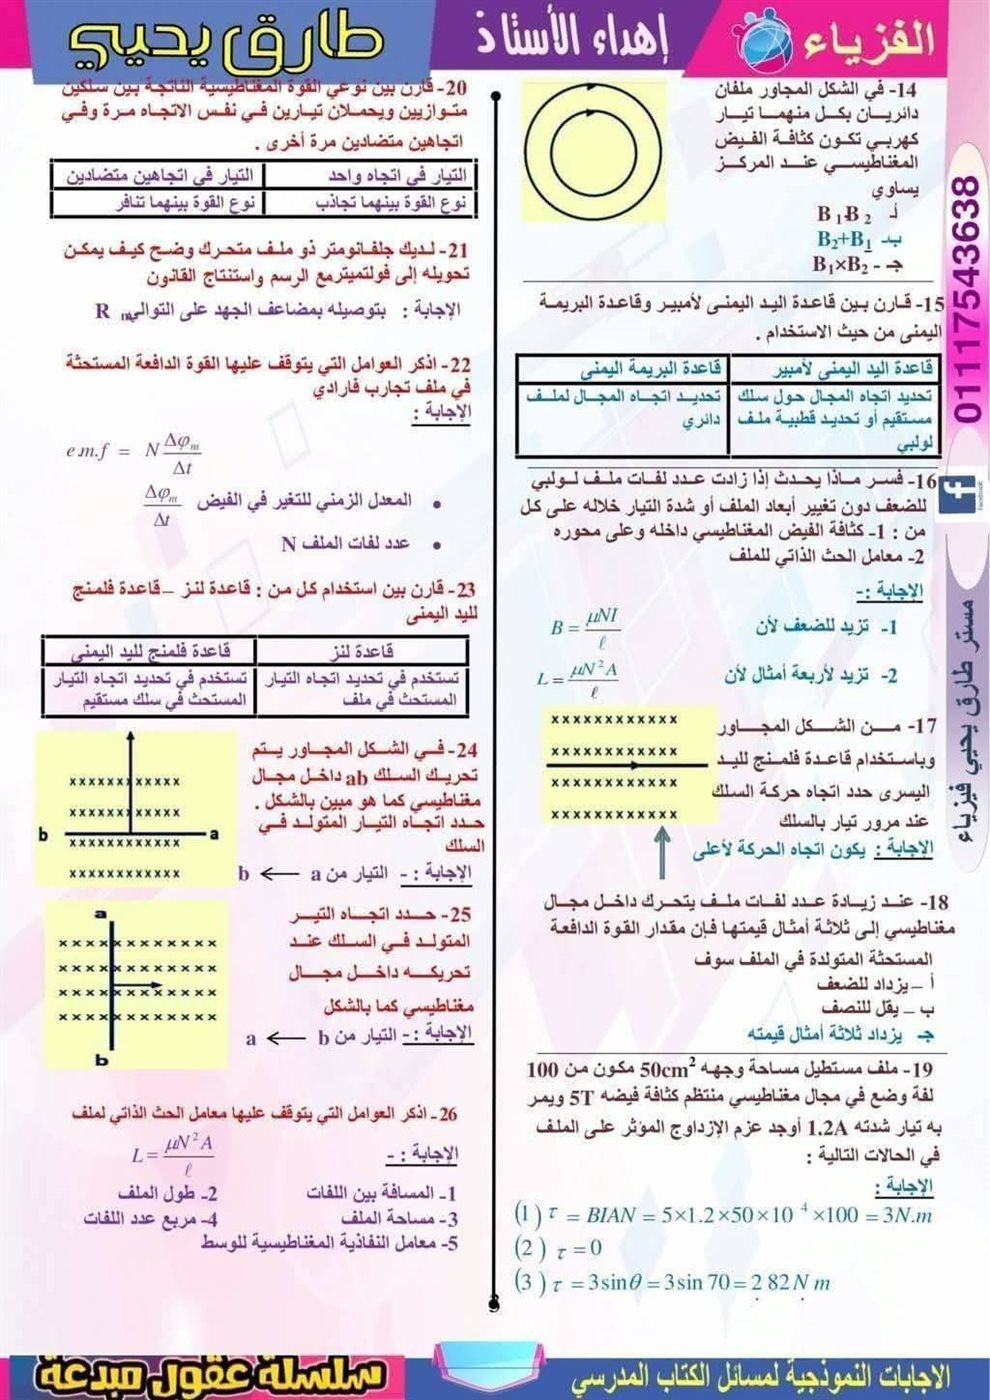 الفزياء
إهداء الأستاذ
طارق يحيي
14- في الشكل المجاور ملفان
دائريان بكل منهما تيار
كهربي تكون كثافة الفيض
المغناطيسي عند المركز
يساوي
أ- B1-B2
ب- B2+B1
جـ - B1×B2
15- قارن بين قاعدة اليد اليمنى لأمبير وقاعدة البريمة
اليمنى من حيث الاستخدام .
قاعدة اليد اليمنى لأمبير | قاعدة البريمة اليمنى
تحديد اتجاه المجال حول سلك | تحديد اتجاه المجال لملف
مستقيم أو تحديد قطبية ملف | دائري
لولبي
16- فسر ماذا يحدث إذا زادت عدد لفات ملف لولبي
للضعف دون تغيير أبعاد الملف أو شدة التيار خلاله على كل
من : 1- كثافة الفيض المغناطيسي داخله وعلى محوره
2- معامل الحث الذاتي للملف
الإجابة :-
1- تزيد للضعف لأن B = μNI / ℓ
2- تزيد لأربعة أمثال لأن L = μN²A / ℓ
17- من الشكل المجاور
وباستخدام قاعدة فلمنج لليد
اليسرى حدد اتجاه حركة السلك
عند مرور تيار بالسلك
الإجابة : يكون اتجاه الحركة لأعلى
xxxxxxxxxxxx
xxxxxxxxxxxx
xxxxxxxxxxxx
xxxxxxxxxxxx
18- عند زيادة عدد لفات ملف يتحرك داخل مجال
مغناطيسي إلى ثلاثة أمثال قيمتها فإن مقدار القوة الدافعة
المستحثة المتولدة في الملف سوف
أ – يزداد للضعف
ب – يقل للنصف
جـ يزداد ثلاثة أمثال قيمته
19- ملف مستطيل مساحة وجهه 50cm² مكون من 100
لفة وضع في مجال مغناطيسي منتظم كثافة فيضه 5T ويمر
به تيار شدته 1.2A أوجد عزم الإزدواج المؤثر على الملف
في الحالات التالية :
الإجابة :
(1) τ = BIAN = 5×1.2×50×10 4 ×100 = 3N.m
(2) τ = 0
(3) τ = 3sinθ = 3sin 70 = 2.82N.m
20- قارن بين نوعي القوة المغناطيسية الناتجة بين سلكين
متوازيين ويحملان تيارين في نفس الاتجاه مرة وفي
اتجاهين متضادين مرة أخرى .
التيار في اتجاه واحد | التيار في اتجاهين متضادين
نوع القوة بينهما تجاذب | نوع القوة بينهما تنافر
21- لديك جلفانومتر ذو ملف متحرك وضح كيف يمكن
تحويله إلى فولتميتر مع الرسم واستنتاج القانون
الإجابة : بتوصيله بمضاعف الجهد على التوالي Rm
22- اذكر العوامل التي يتوقف عليها القوة الدافعة المستحثة
في ملف تجارب فارادي
الإجابة :
e.m.f = N Δφm / Δt
• المعدل الزمني للتغير في الفيض Δφm / Δt
• عدد لفات الملف N
23- قارن بين استخدام كل من : قاعدة لنز – قاعدة فلمنج
لليد اليمنى
قاعدة لنز | قاعدة فلمنج لليد اليمنى
تستخدم في تحديد اتجاه التيار | تستخدم في تحديد اتجاه التيار
المستحث في ملف | المستحث في سلك مستقيم
24- في الشكل المجاور يتم
تحريك السلك ab داخل مجال
مغناطيسي كما هو مبين بالشكل .
حدد اتجاه التيار المتولد في
السلك
الإجابة :- التيار من a ← b
xxxxxxxxxxxx
xxxxxxxxxxxx
b a
xxxxxxxxxxxx
xxxxxxxxxxxx
25- حدد اتجاه التير
المتولد في السلك عند
تحريكه داخل مجال
مغناطيسي كما بالشكل
الإجابة :- التيار من b ← a
a
xxxxxxxxxxxx
xxxxxxxxxxxx
xxxxxxxxxxxx
xxxxxxxxxxxx
b
26- اذكر العوامل التي يتوقف عليها معامل الحث الذاتي لملف
الإجابة :-
L = μN²A / ℓ
1- المسافة بين اللفات 2- طول الملف
3- مساحة الملف 4- مربع عدد اللفات
5- معامل النفاذية المغناطيسية للوسط
01117543638
f
facebook
مستر طارق يحيي فيزياء
الاجابات النموذجية لمسائل الكتاب المدرسي
سلسلة عقول مبدعة